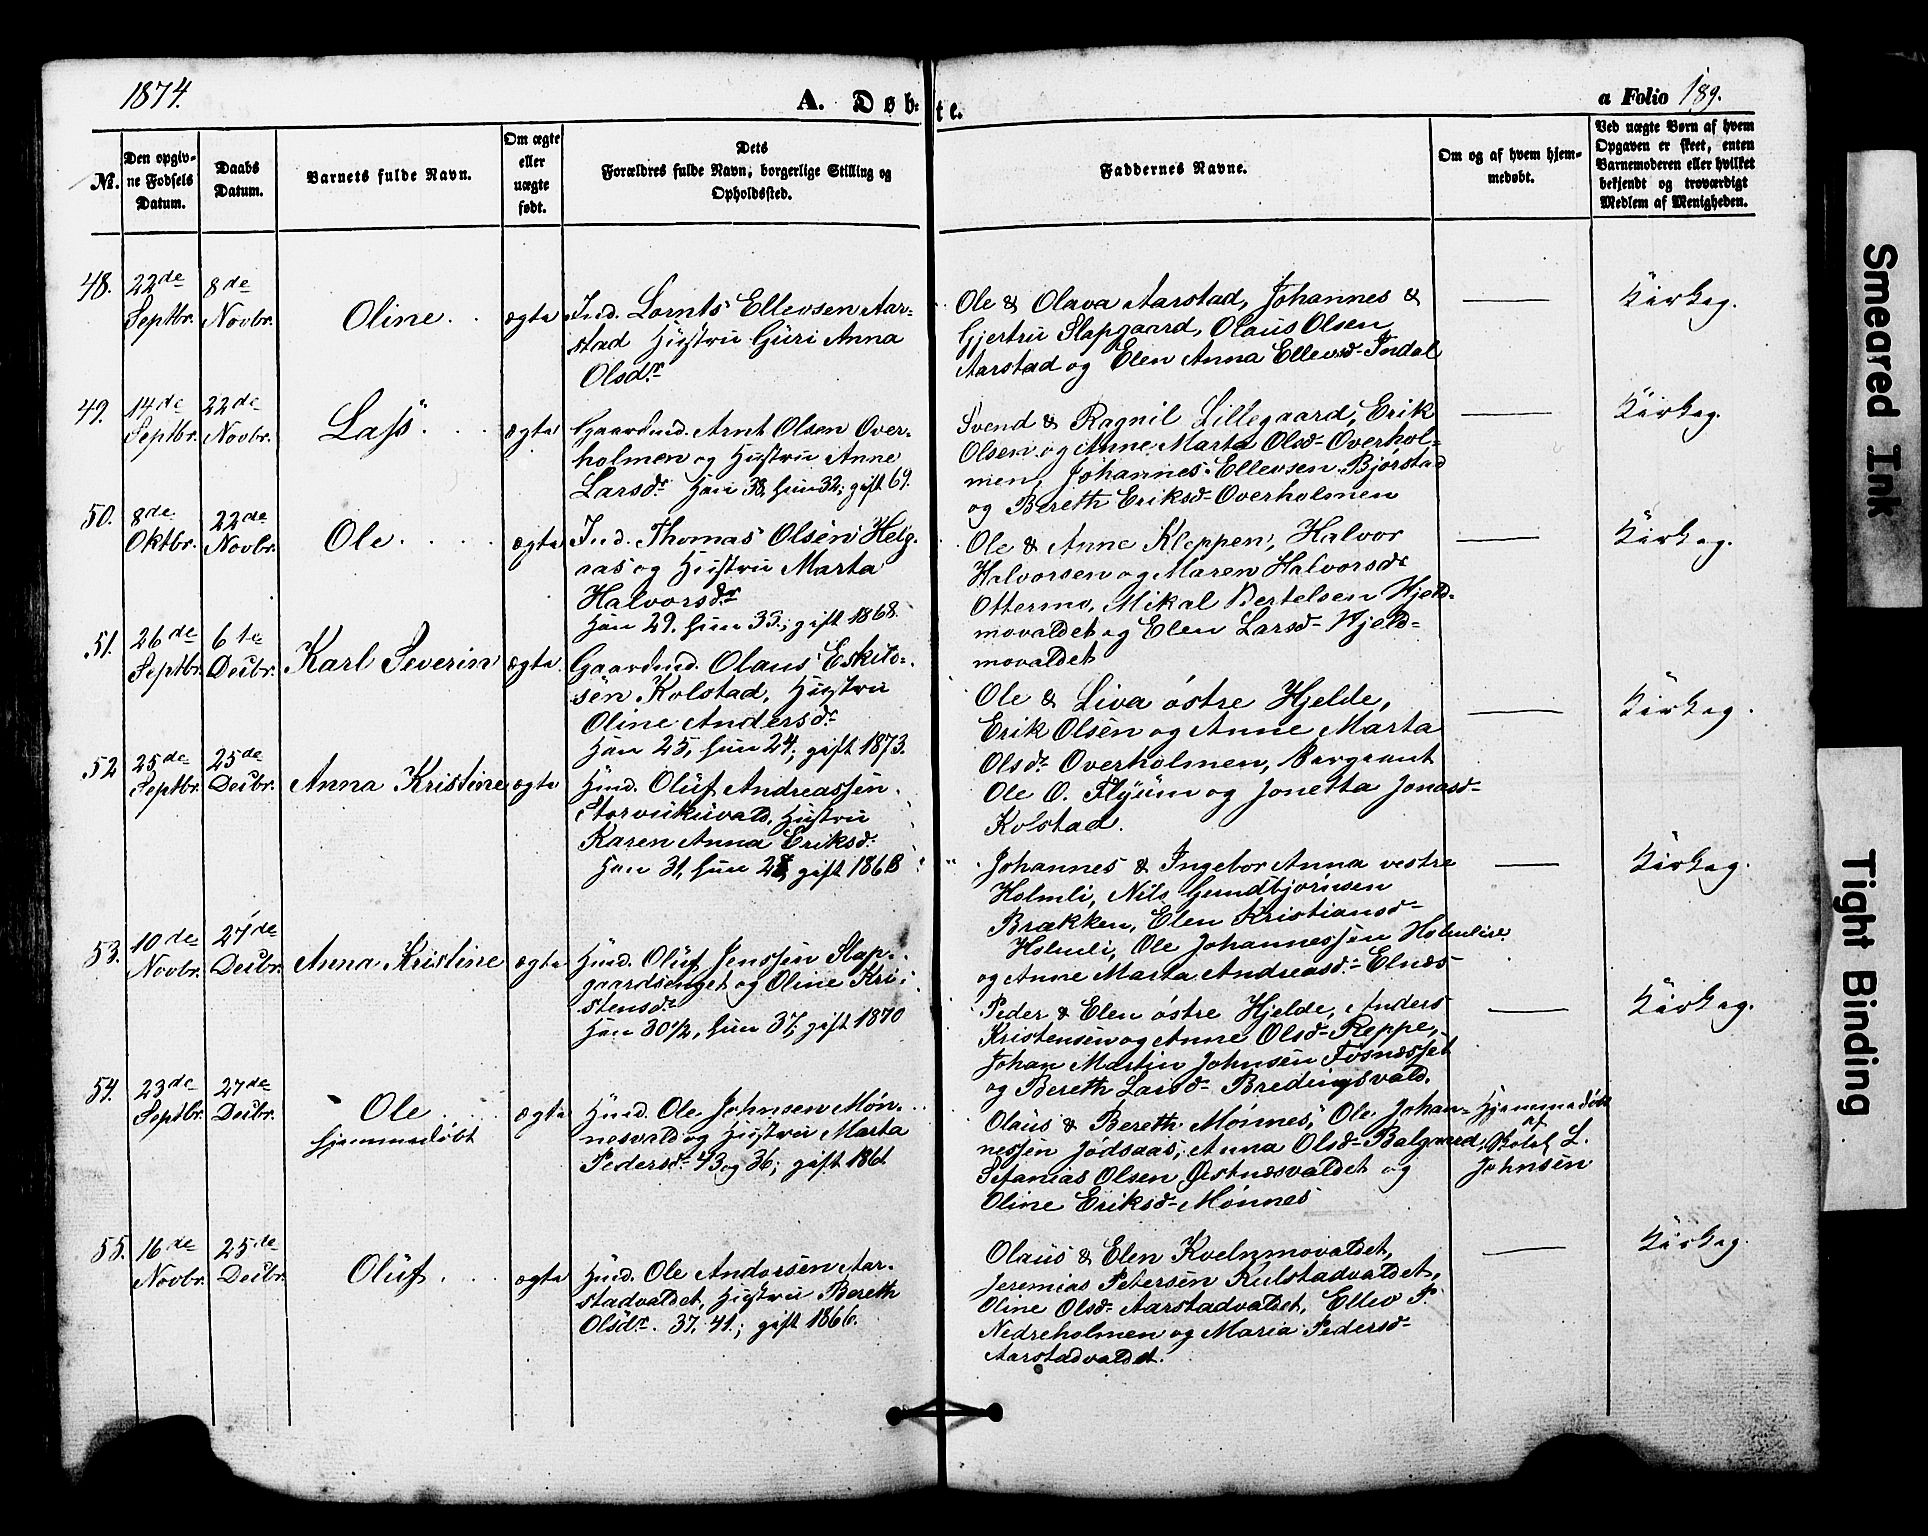 1874.
A. Døbte.
a Folio 189.
No.
Den opgivne Fødsels Datum.
Daabs Datum.
Barnets fulde Navn.
Om ægte eller uægte født.
Dets Forældres fulde Navn, borgerlige Stilling og Opholdssted.
Faddernes Navne.
Om og af hvem hjemmedøbt.
Ved uægte Børn af hvem Opgaven er skeet, enten Barnemoderen eller hvilket bekjendt og troværdigt Medlem af Menigheden.
48.
22de Septbr.
8de Novbr.
Oline
ægte
Ind. Lornts Ellevsen Aar-
stad Hustru Guri Anna
Olsdr
Ole & Olava Aarstad, Johannes &
Gjertru Slapgaard, Olaus Olsen
Aarstad og Elen Anna Ellevsd Indal
Kirkeg.
49.
14de Septbr.
22de Novbr.
Lass
ægte
Gaardmd. Arnt Olsen Over-
holmen og Hustru Anne
Larsdr Han 38, hun 32; gift 69.
Svend & Ragnil Lillegaard, Erik
Olsen og Anne Marta Olsd Overhol-
men, Johannes Ellevsen Bjørstad
og Bereth Eriksd Overholmen
Kirkeg.
50.
8de Oktbr.
22de Novbr.
Ole
ægte
Ind. Thomas Olsen Helg-
aas og Hustru Marta
Halvorsdr
Han 29. hun 35.; gift 1868.
Ole & Anne Kleppen, Halvor
Halvorsen og Maren Halvorsdr
Ottermo, Mikal Bertelsen Hjeld-
movaldet og Elen Larsd Hjeld-
movaldet
Kirkeg.
51.
26de Septbr.
6te Decbr.
Karl Severin
ægte
Gaardmd. Olaus Eskils-
sen Kolstad, Hustru
Oline Andersdr
Han 25, hun 24; gift 1873.
Ole & Liva østre Hjelde,
Erik Olsen og Anne Marta
Olsdr Overholmen, Sergeant
Ole O. Flyüm og Jonetta Jonasd
Kolstad.
Kirkeg.
52
25de Septbr.
25de Decbr.
Anna Kristine
ægte
Husmd. Oluf Andreassen
Storvukuvald, Hustru
Karen Anna Eriksd.
Han 31, hun 28, gift 1868
Johannes & Ingebor Anna vestre
Holmli, Nils Gundbjørnsen
Brækken, Elen Kristiansd
Holmli, Ole Johannessen Holmlie
og Anne Marta Andreasd Elnæs
Kirkeg.
53.
10de Novbr.
27de Decbr.
Anna Kristine
ægte
Husmd. Oluf Jenssen Slap-
gaardsenget og Oline Kri-
stensdr
Han 30½, hun 37; gift 1870
Peder & Elen østre Hjelde, Anders
Kristensen og Anne Olsd Reppe,
Johan Martin Johnsen Fosnæsset
og Bereth Larsd Bredingsvald.
Kirkeg.
54.
23de Septbr.
27de Decbr.
Ole
hjemmedøbt
ægte
Husmd. Ole Johnsen Møn-
nesvald og Hustru Marta
Pedersdr 43 og 36; gift 1861
Olaus & Bereth Mønnes, Ole Johan-
nessen Jødsaas, Anna Olsd Balgaard,
Sefanias Olsen Østnæsvaldet og
Oline Eriksd Mønnes
Hjemmedøbt
af
L.
Johnsen
55.
16de Novbr.
25de Decbr.
Oluf
ægte
Husmd. Ole Andersen Aar-
stadvaldet, Hustru Bereth
Olsdr. 37, 41; gift 1866.
Olaus & Elen Kvelnmovaldet,
Jeremias Petersen Kulstadvaldet,
Oline Olsd Aarstadvaldet, Ellev P.
Nedreholmen og Maria Pedersd
Aarstadvaldet.
Kirkeg.
Smeared Ink
Tight Binding